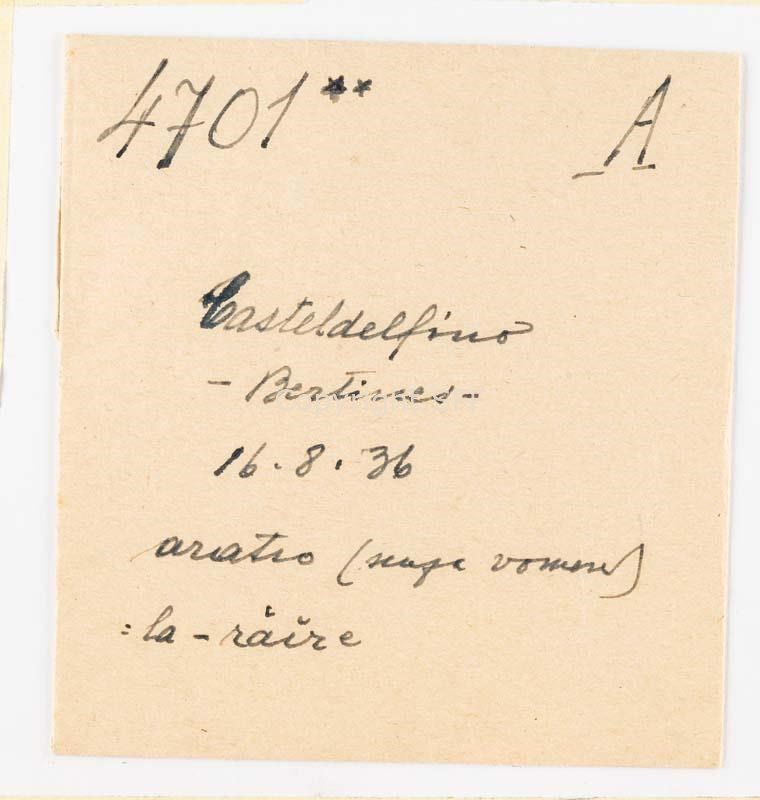 4701** A
Casteldelfino
- Bertines -
16.8.36
aratro (senza vomere)
: la - ràĭre